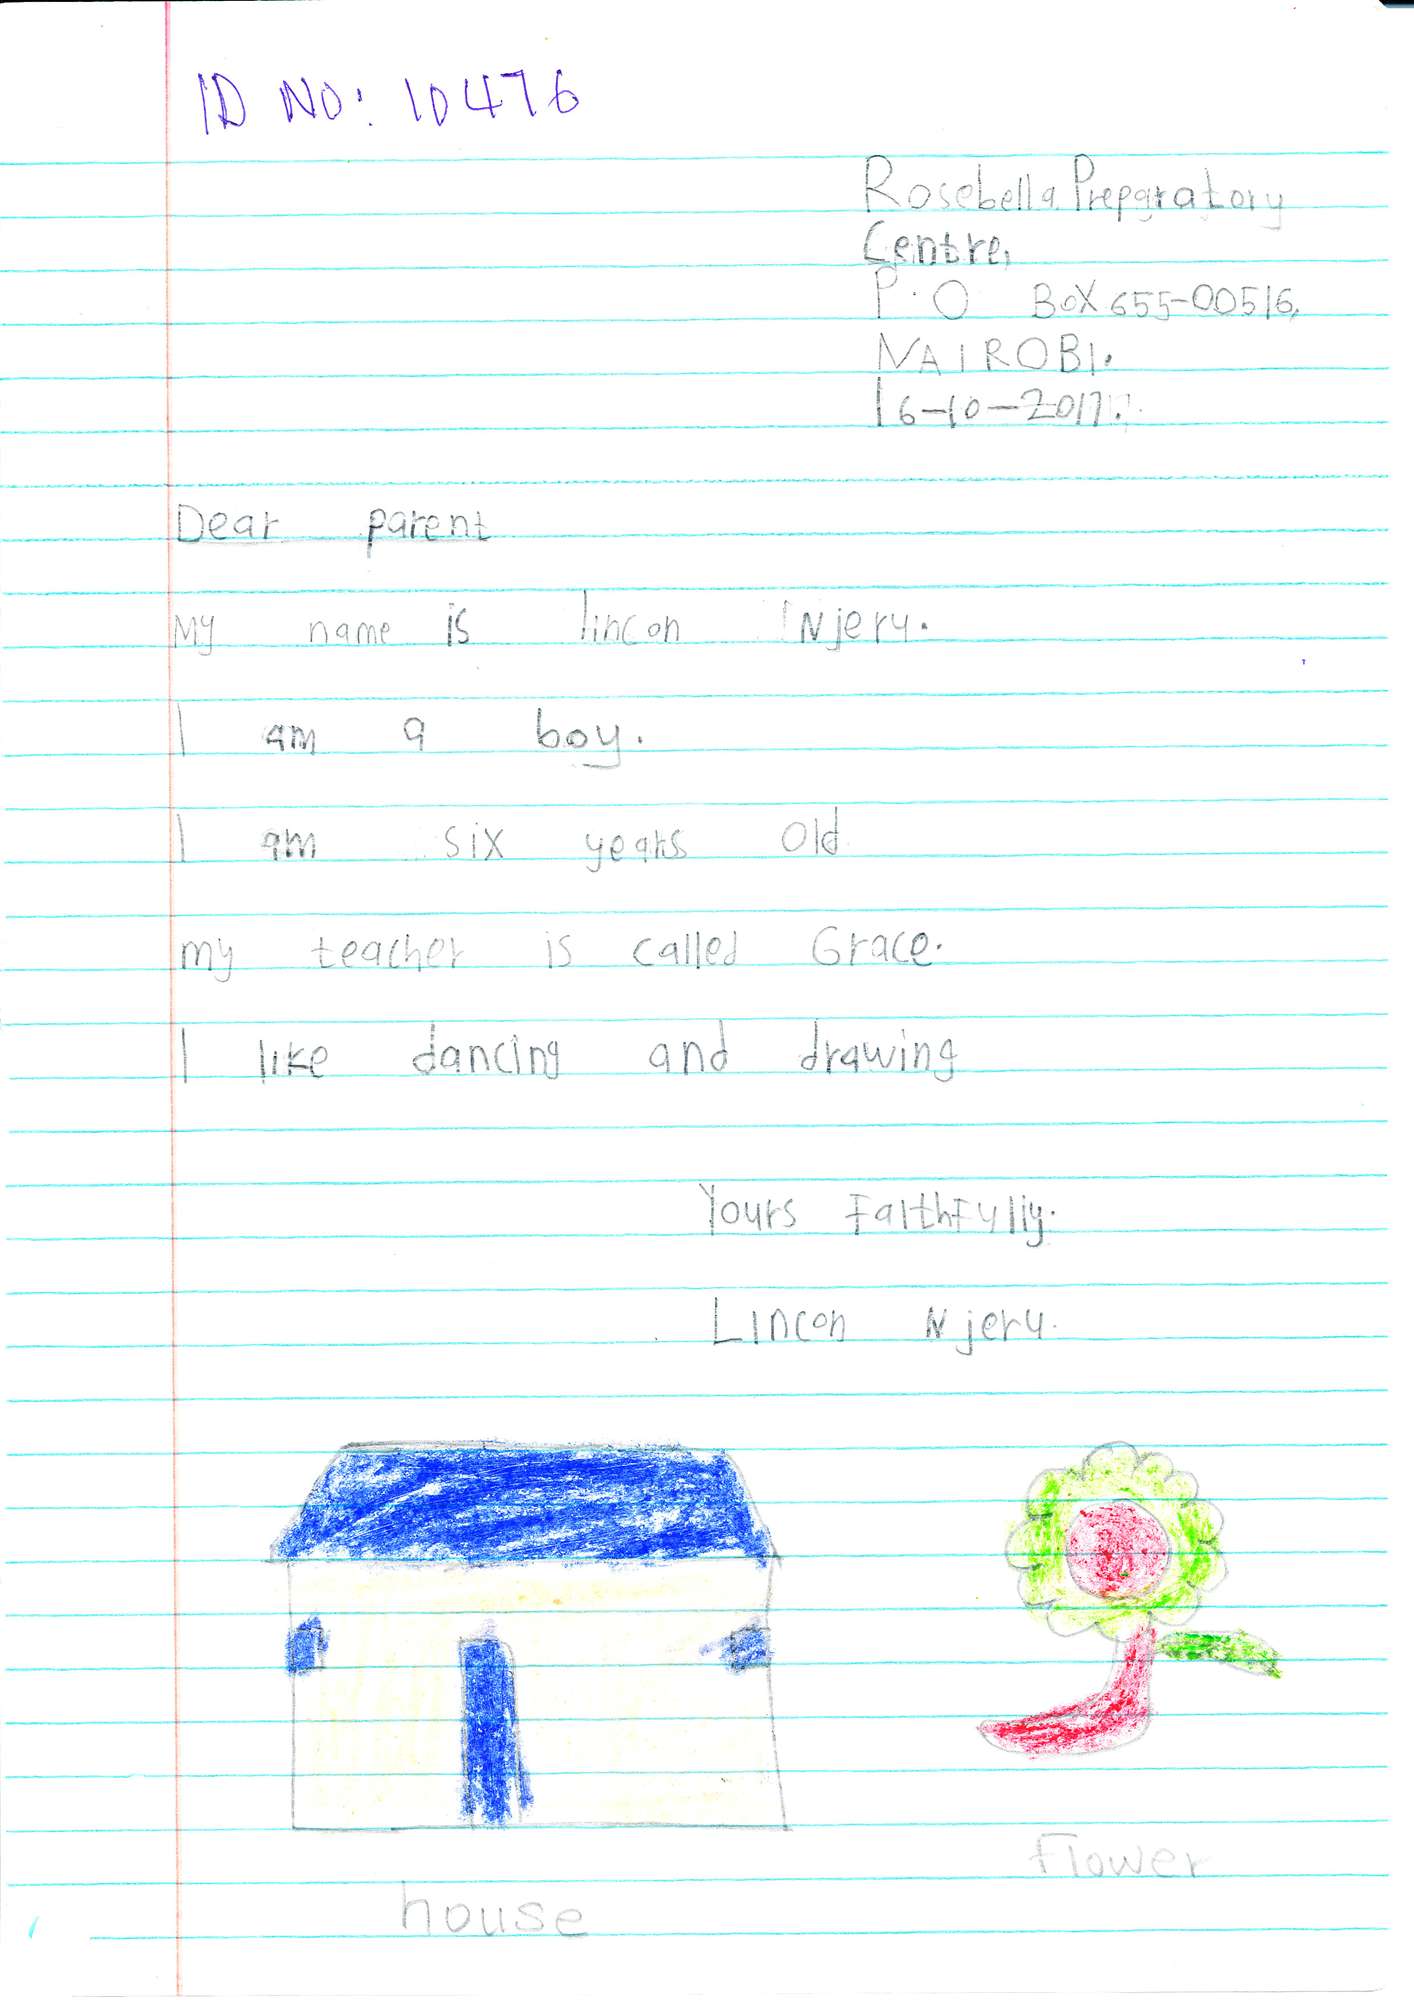 ID NO: 10476
Rosebella Preparatory
Centre,
P.O BOX 655-00516,
NAIROBI.
16-10-2017.
Dear parent
My name is lincon Njeru.
I am a boy.
I am six years old
my teacher is called Grace.
I like dancing and drawing
Yours Faithfully.
Lincon Njeru.
Flower
house